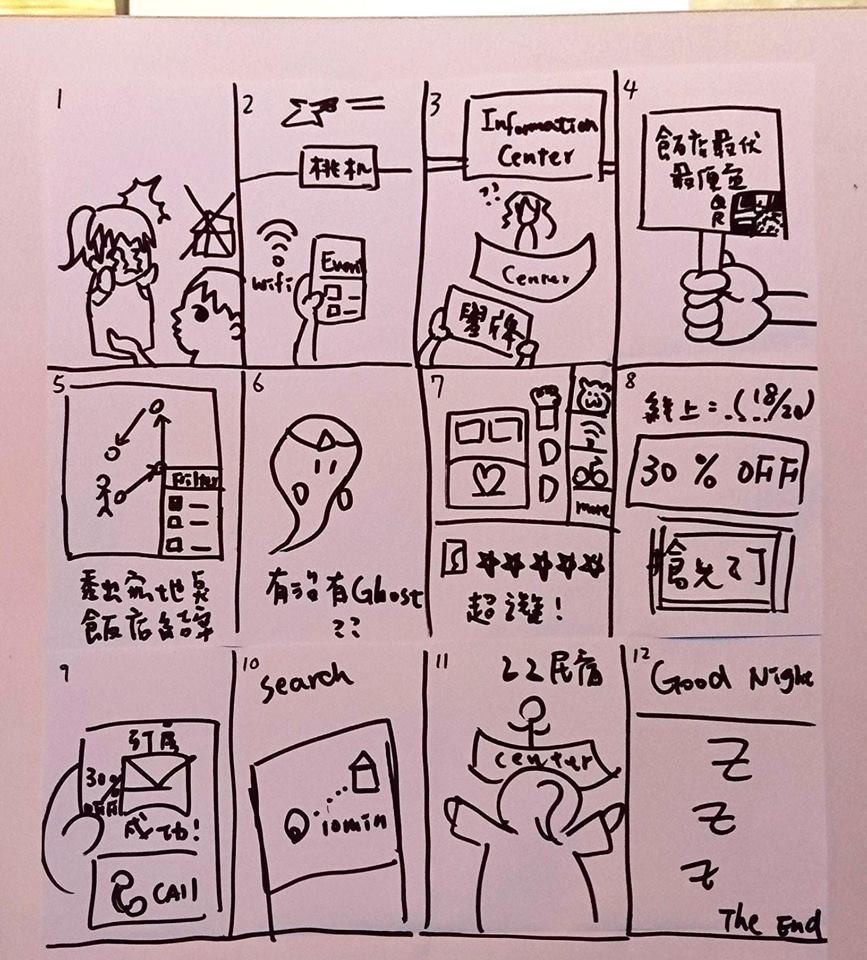 1
2
桃机
wifi
Event
3
Information
Center
??
Center
舉牌
4
飯店最优
最便宜
QR
5
Filter
飯店結單
6
有沒有Ghost
??
7
more
超讚!
8
線上=-(18/20)
30 % OFF
搶先訂
9
訂房
30%
OFF
成功!
CALL
10
search
10min
11
ZZ民宿
center
12
Good Night
Z
Z
Z
The End